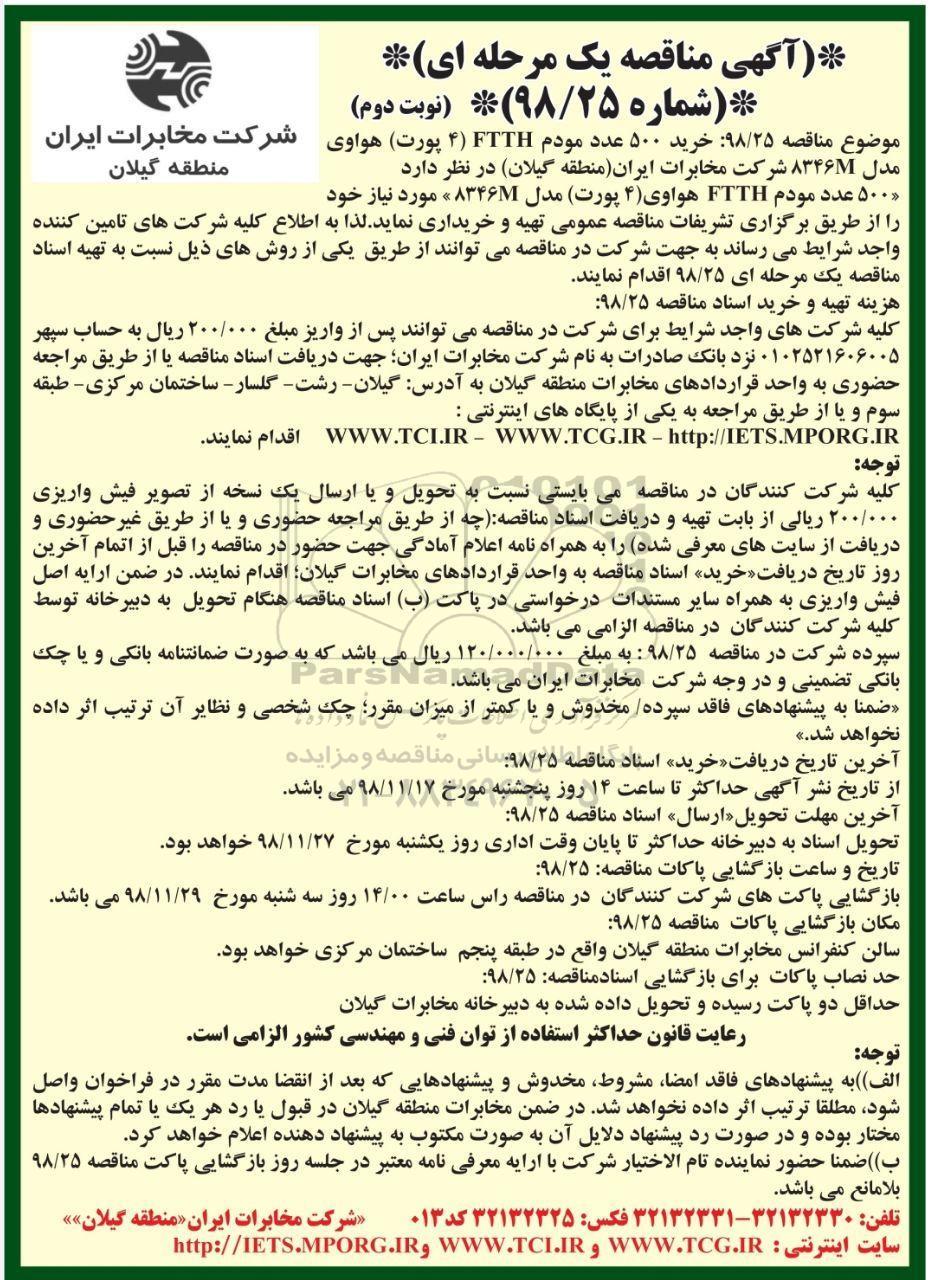 *(آگهی مناقصه یک مرحله ای)*
*(شماره ۹۸/۲۵)* (نوبت دوم)
شرکت مخابرات ایران
منطقه گیلان
موضوع مناقصه ۹۸/۲۵: خرید ۵۰۰ عدد مودم FTTH (۴ پورت) هواوی
مدل ۸۳۴۶M شرکت مخابرات ایران(منطقه گیلان) در نظر دارد
«۵۰۰ عدد مودم FTTH هواوی(۴ پورت) مدل ۸۳۴۶M» مورد نیاز خود
را از طریق برگزاری تشریفات مناقصه عمومی تهیه و خریداری نماید.لذا به اطلاع کلیه شرکت های تامین کننده
واجد شرایط می رساند به جهت شرکت در مناقصه می توانند از طریق یکی از روش های ذیل نسبت به تهیه اسناد
مناقصه یک مرحله ای ۹۸/۲۵ اقدام نمایند.
هزینه تهیه و خرید اسناد مناقصه ۹۸/۲۵:
کلیه شرکت های واجد شرایط برای شرکت در مناقصه می توانند پس از واریز مبلغ ۲۰۰/۰۰۰ ریال به حساب سپهر
۰۱۰۲۵۲۱۶۰۶۰۰۵ نزد بانک صادرات به نام شرکت مخابرات ایران؛ جهت دریافت اسناد مناقصه یا از طریق مراجعه
حضوری به واحد قراردادهای مخابرات منطقه گیلان به آدرس: گیلان- رشت- گلسار- ساختمان مرکزی- طبقه
سوم و یا از طریق مراجعه به یکی از پایگاه های اینترنتی :
WWW.TCI.IR - WWW.TCG.IR - http://IETS.MPORG.IR اقدام نمایند.
توجه:
کلیه شرکت کنندگان در مناقصه می بایستی نسبت به تحویل و یا ارسال یک نسخه از تصویر فیش واریزی
۲۰۰/۰۰۰ ریالی از بابت تهیه و دریافت اسناد مناقصه:(چه از طریق مراجعه حضوری و یا از طریق غیرحضوری و
دریافت از سایت های معرفی شده) را به همراه نامه اعلام آمادگی جهت حضور در مناقصه را قبل از اتمام آخرین
روز تاریخ دریافت«خرید» اسناد مناقصه به واحد قراردادهای مخابرات گیلان؛ اقدام نمایند. در ضمن ارایه اصل
فیش واریزی به همراه سایر مستندات درخواستی در پاکت (ب) اسناد مناقصه هنگام تحویل به دبیرخانه توسط
کلیه شرکت کنندگان در مناقصه الزامی می باشد.
سپرده شرکت در مناقصه ۹۸/۲۵ : به مبلغ ۱۲۰/۰۰۰/۰۰۰ ریال می باشد که به صورت ضمانتنامه بانکی و یا چک
بانکی تضمینی و در وجه شرکت مخابرات ایران می باشد.
ParsNamadData
«ضمنا به پیشنهادهای فاقد سپرده/ مخدوش و یا کمتر از میزان مقرر؛ چک شخصی و نظایر آن ترتیب اثر داده
نخواهد شد.»
پایگاه اطلاع رسانی مناقصه و مزایده
آخرین تاریخ دریافت«خرید» اسناد مناقصه ۹۸/۲۵:
از تاریخ نشر آگهی حداکثر تا ساعت ۱۴ روز پنجشنبه مورخ ۹۸/۱۱/۱۷ می باشد.
آخرین مهلت تحویل«ارسال» اسناد مناقصه ۹۸/۲۵:
تحویل اسناد به دبیرخانه حداکثر تا پایان وقت اداری روز یکشنبه مورخ ۹۸/۱۱/۲۷ خواهد بود.
تاریخ و ساعت بازگشایی پاکات مناقصه: ۹۸/۲۵:
بازگشایی پاکت های شرکت کنندگان در مناقصه راس ساعت ۱۴/۰۰ روز سه شنبه مورخ ۹۸/۱۱/۲۹ می باشد.
مکان بازگشایی پاکات مناقصه ۹۸/۲۵:
سالن کنفرانس مخابرات منطقه گیلان واقع در طبقه پنجم ساختمان مرکزی خواهد بود.
حد نصاب پاکات برای بازگشایی اسنادمناقصه: ۹۸/۲۵:
حداقل دو پاکت رسیده و تحویل داده شده به دبیرخانه مخابرات گیلان
رعایت قانون حداکثر استفاده از توان فنی و مهندسی کشور الزامی است.
توجه:
الف))به پیشنهادهای فاقد امضا، مشروط، مخدوش و پیشنهادهایی که بعد از انقضا مدت مقرر در فراخوان واصل
شود، مطلقا ترتیب اثر داده نخواهد شد. در ضمن مخابرات منطقه گیلان در قبول یا رد هر یک یا تمام پیشنهادها
مختار بوده و در صورت رد پیشنهاد دلایل آن به صورت مکتوب به پیشنهاد دهنده اعلام خواهد کرد.
ب))ضمنا حضور نماینده تام الاختیار شرکت با ارایه معرفی نامه معتبر در جلسه روز بازگشایی پاکت مناقصه ۹۸/۲۵
بلامانع می باشد.
تلفن: ۳۲۱۳۲۳۳۰-۳۲۱۳۲۳۳۱ فکس: ۳۲۱۳۲۳۲۵ کد۰۱۳ «شرکت مخابرات ایران«منطقه گیلان»»
سایت اینترنتی : WWW.TCG.IR و WWW.TCI.IR و http://IETS.MPORG.IR